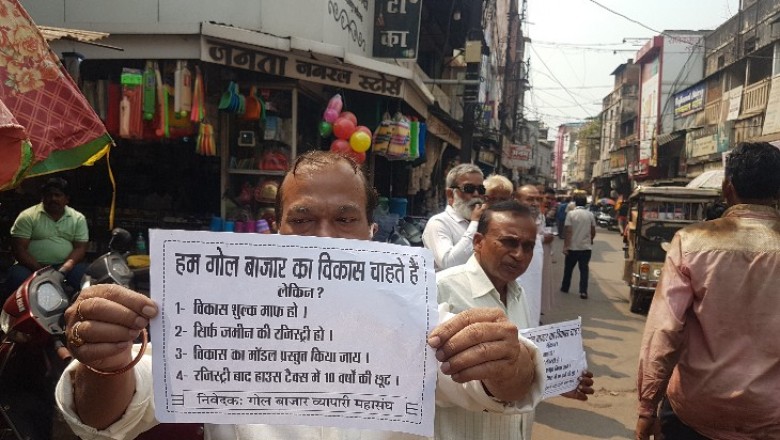 जनता जनरल स्टोर्स
हम गोल बाजार का विकास चाहते हैं
लेकिन ?
1- विकास शुल्क माफ हो ।
2- सिर्फ जमीन की रजिस्ट्री हो ।
3- विकास का मॉडल प्रस्तुत किया जाय ।
4- रजिस्ट्री बाद हाउस टैक्स में 10 वर्षो की छूट ।
निवेदकः गोल बाजार व्यापारी महासंघ